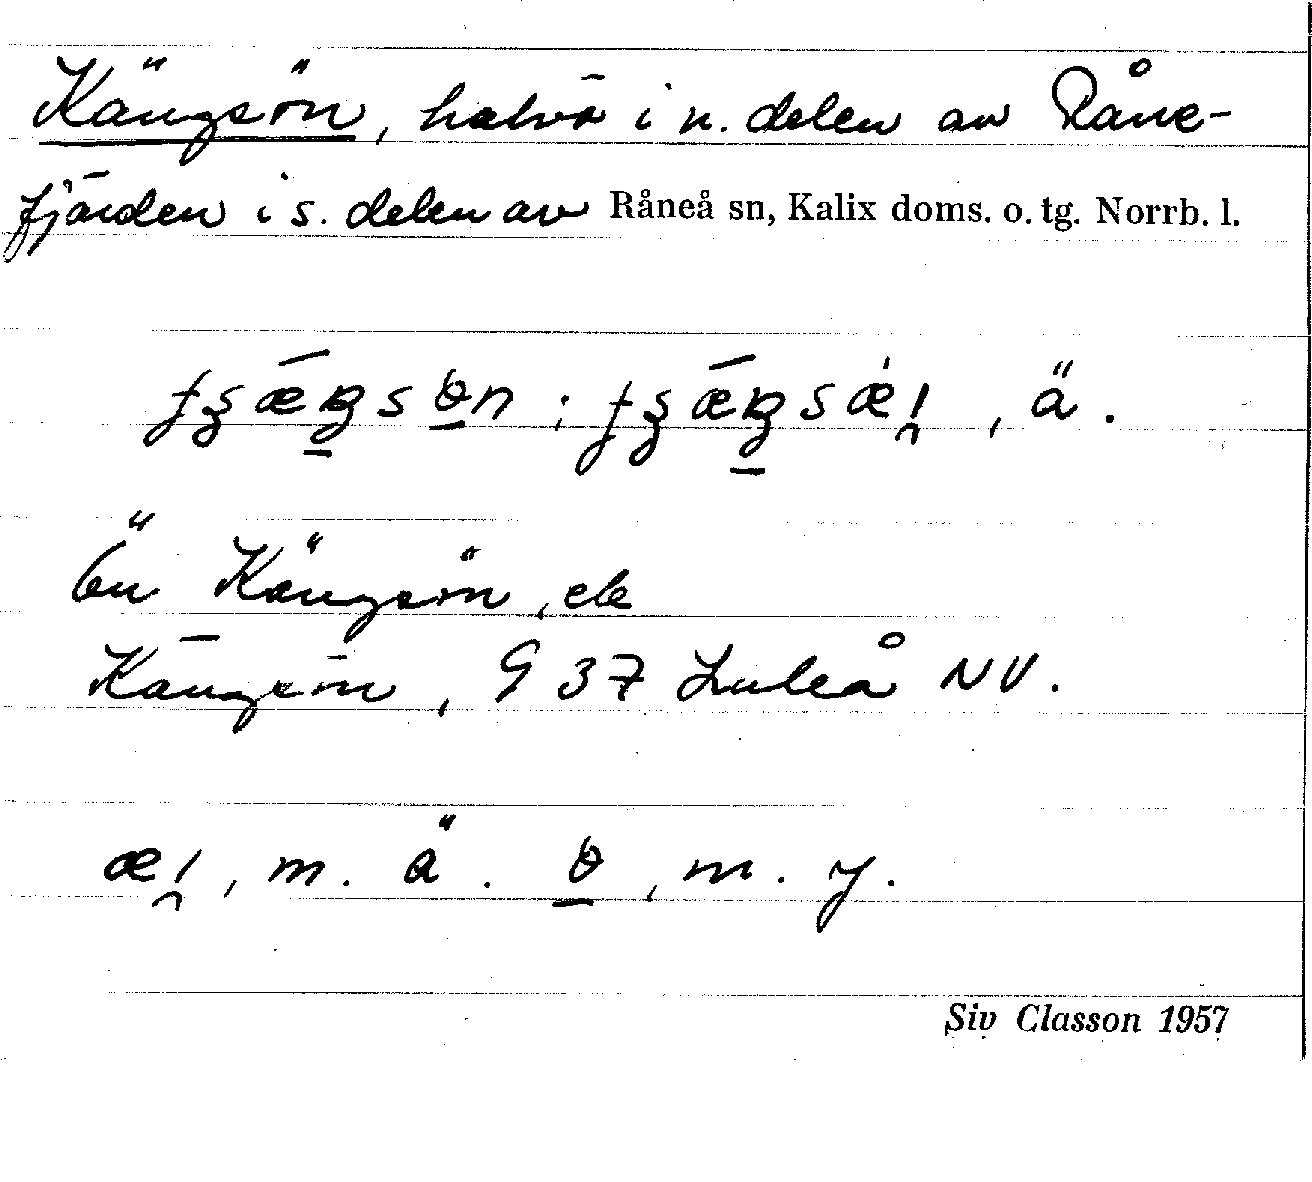 Kängsön, halvö i n. delen av Råne-
fjärden i s. delen av Råneå sn, Kalix doms. o. tg. Norrb. l.
, ä.
Kängsön, ek
Kängsön, 9 37 Luleå NV.
, m. ä. , m. y.
Siv Classon 1957